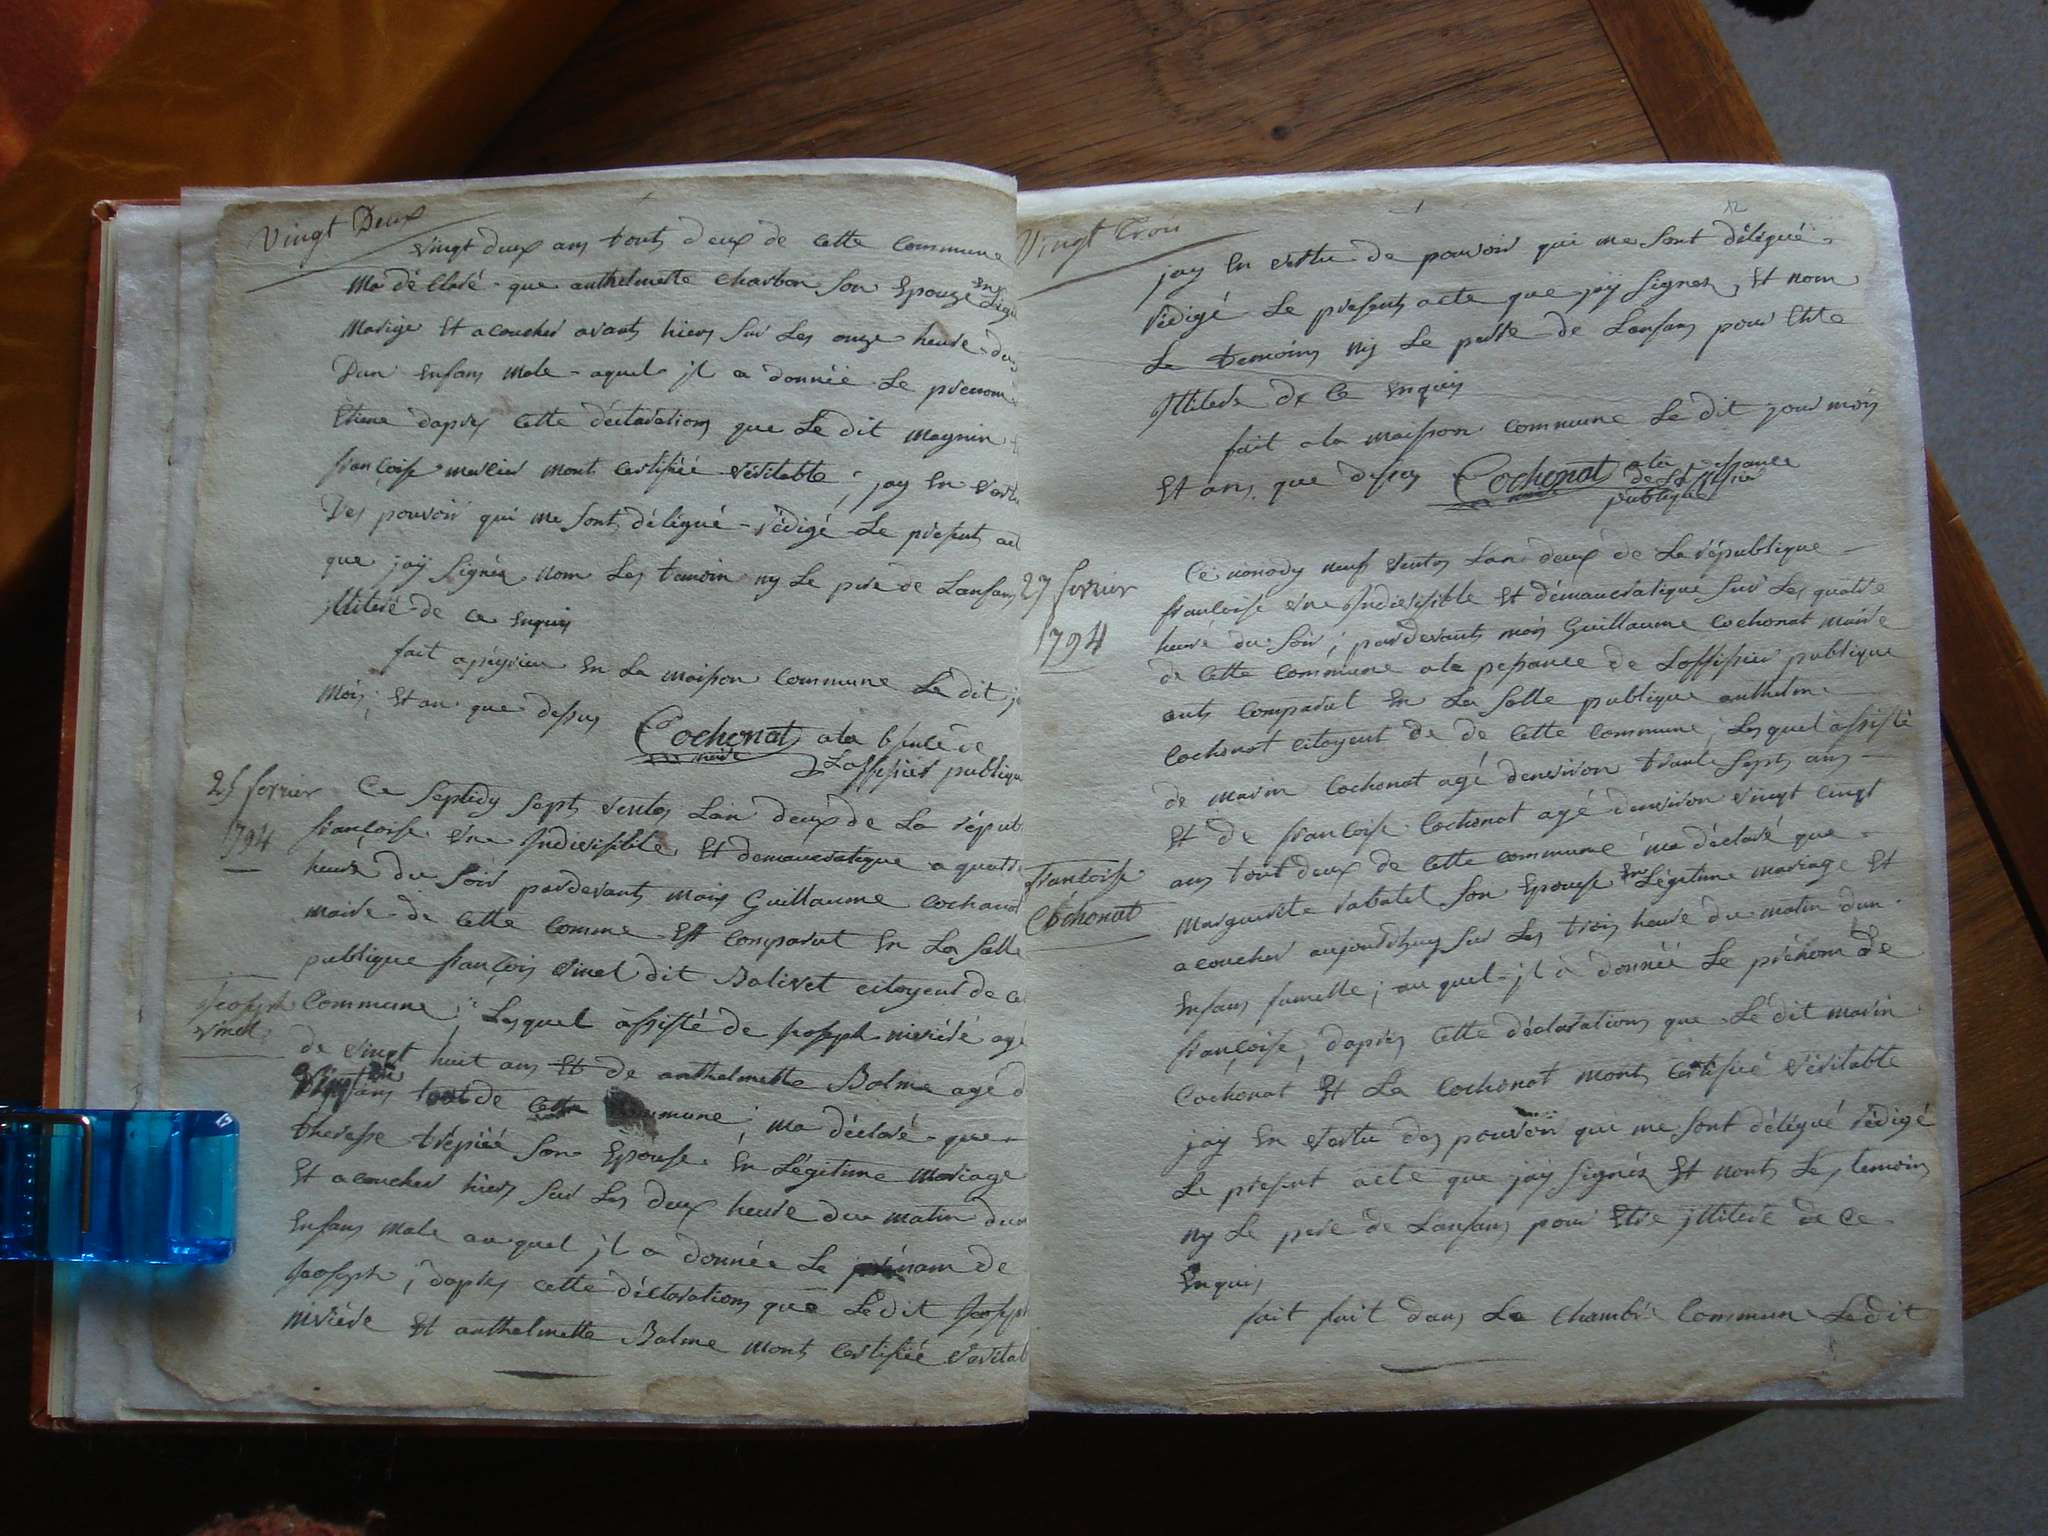 Vingt Deux
vingt deux ans touts deux de cette commune
ma déclaré que anthelmette charbon son Epouze en
marige Et acoucher avants hiers sur les onze heure du
Dun Enfans male aquel jl a donnée Le prenom
Etiene daprés cette déclarations que Le dit magnin
françoise mont certifiée véritable; jay En vertu
Des pouvoir qui me sont délégué rédigé Le présents act
que jaÿ signéz nom Les temoin ny Le pere de Lanfans
jlliteré de ce Enquis
fait apeyrieu En La maison commune Le dit j
mois; Et an que dessus Cochonat maire ala bsence de
Loffisier publique
25 fevrier
1794
Ce septidy sept ventos Lan deux de La répub
françoise une Indivisible Et démaucratique a quatre
heure du soir pardevants mois Guillaume cochonat
maire de cette comme Est comparut En La salle
publique françois vinet dit Bolivet citoyent de cet
Joseph
vinet
Commune; Lesquel assisté de Joseph agé
de vingt huit ans Et de anthelmette Balme agé d
ans tout de cette commune; ma déclaré que
therese trépiée son Epouse En Légitime mariage
Et acoucher hiers sur Les deux heure du matin dun
Enfans male auquel jl a donnée Le prénom de
Joseph; daprés cette déclarations que Ledit Joseph
Et anthelmette Balme monts certifiée véritab
Vingt Trois
12
jay En vertu de pouvoir qui me sont délégué
rédigé Le présents acte que jay signez Et nom
Le temoins ny Le pere de Lanfans pour Etre
jlliteré de ce Enquis
fait ala maison commune Le dit jour mois
Et ans que dessus Cochonat maire ala
de Loffisié
publique
27 fevrier
1794
Ce nonody neuf ventos Lan deux de La république
françoise une Indivisible Et démaucratique sur Les quatre
heuré du soir; pardevants mois Guillaume Cochonat maire
de cette commune ala de Loffisier publique
ants comparut En La salle publique anthelme
Cochonat citoyent de de cette commune; Lesquel assisté
de marin Cochonat agé denviron trante septs ans
Et de françoise Cochonat agé denviron vingt cinqt
ans tout deux de cette commune ma déclaré que
françoise
Cochonat
marguerite rabatel son Epouse En Légitime mariage Et
acoucher aujourdhuy sur Les trois heure du matin dun
Enfans fumelle; auquel jl a donnée Le prénom de
françoise; daprés cette déclarations que Lédit marin
Cochonat Et La cochonat monts certifié véritable
jay En vertu des pouvoir qui me sont délégué rédigé
Le présent acte que jay signéz Et nonts Les temoin
ny Le pere de Lanfans pour Etre jlliteré de ce
Enquis
fait fait dans La chambre Commun Ledit